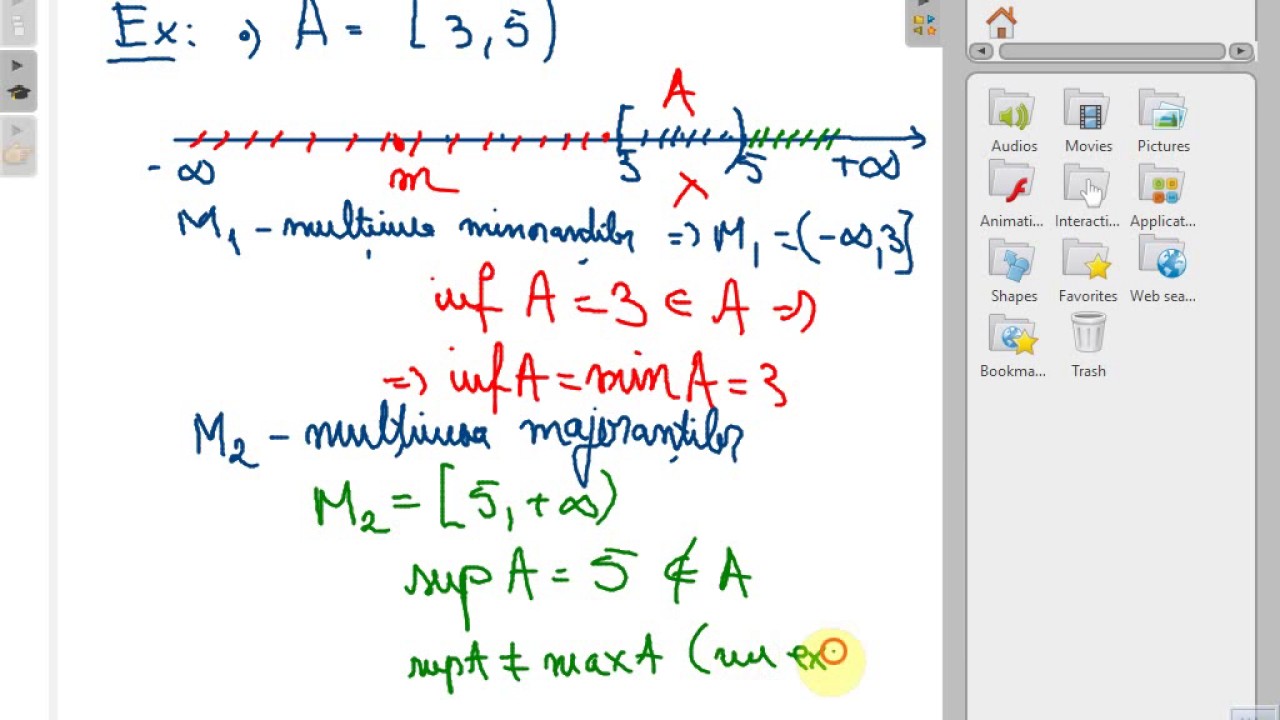 Ex: •) A = [3,5)
A
-∞ m 3 x 5 +∞
M₁ - mulțimea minoranților => M₁ = (-∞,3]
inf A = 3 ∈ A =>
=> inf A = min A = 3
M₂ - mulțimea majoranților
M₂ = [5, +∞)
sup A = 5 ∉ A
sup A ≠ max A (nu ex
Audios Movies Pictures
Animati... Interacti... Applicat...
Shapes Favorites Web sea...
Bookma... Trash